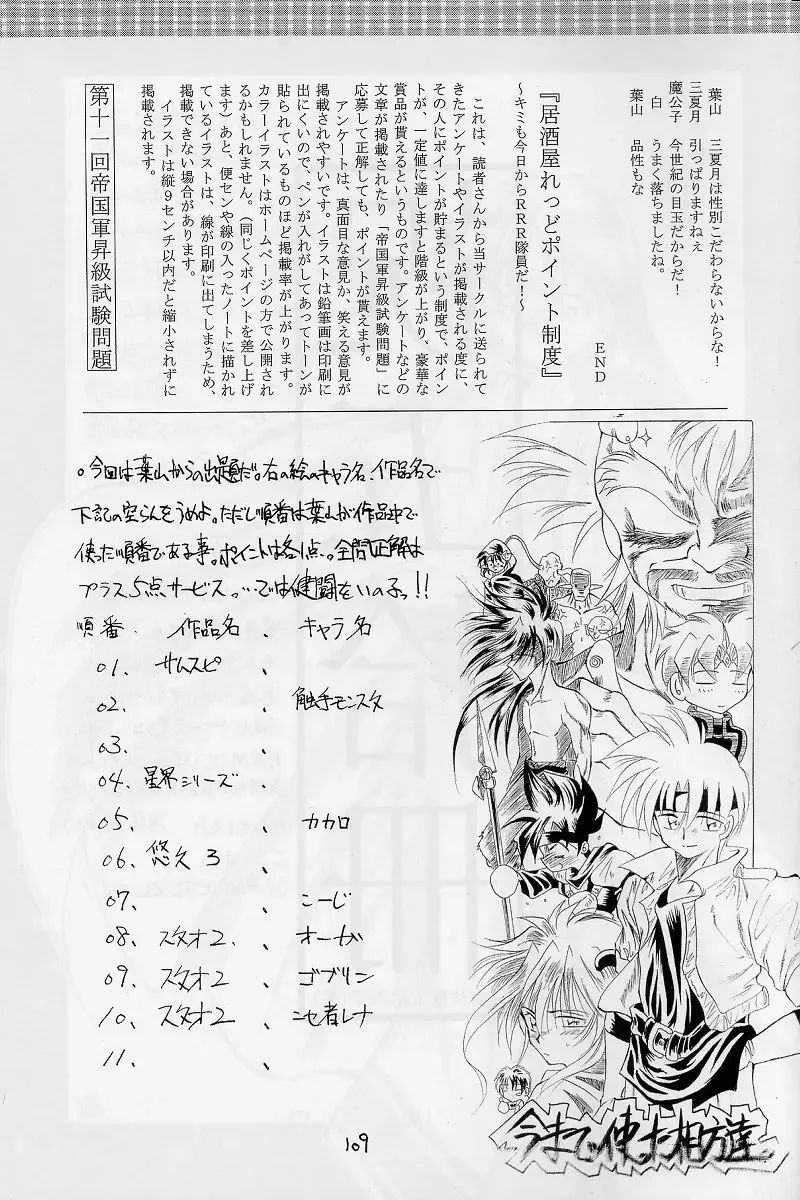 葉山　三夏月は性別こだわらないからな！
三夏月　引っぱりますねぇ
魔公子　今世紀の目玉だからだ！
白　うまく落ちましたね。
葉山　品性もな
END
『居酒屋れっどポイント制度』
～キミも今日からＲＲＲ隊員だ！～
これは、読者さんから当サークルに送られて
きたアンケートやイラストが掲載される度に、
その人にポイントが貯まるという制度で、ポイン
トが、一定値に達しますと階級が上がり、豪華な
賞品が貰えるというものです。アンケートなどの
文章が掲載されたり「帝国軍昇級試験問題」に
応募して正解しても、ポイントが貰えます。
アンケートは、真面目な意見か、笑える意見が
掲載されやすいです。イラストは鉛筆画は印刷に
出にくいので、ペンが入れがしてあってトーンが
貼られているものほど掲載率が上がります。
カラーイラストはホームページの方で公開され
るかもしれません。（同じくポイントを差し上げ
ます）あと、便センや線の入ったノートに描かれ
ているイラストは、線が印刷に出てしまうため、
掲載できない場合があります。
イラストは縦９センチ以内だと縮小されずに
掲載されます。
第十一回帝国軍昇級試験問題
。今回は葉山からの出題だ。右の絵のキャラ名、作品名で
下記の空らんをうめよ。ただし順番は葉山が作品中で
使った順番である事。ポイントは各1点。全問正解は
プラス5点サービス。…では健闘をいのるっ!!
順番．　作品名　、　キャラ名
01．サムスピ　、
02．　、　触手モンスタ
03．　、
04．星界シリーズ　、
05．　、　カカロ
06．悠久3　、
07．　、　こーじ
08．スタオ2．　、　オーガ
09．スタオ2　、　ゴブリン
10．スタオ2　、　ニセ者レナ
11．　、
今まで使った相方達
109